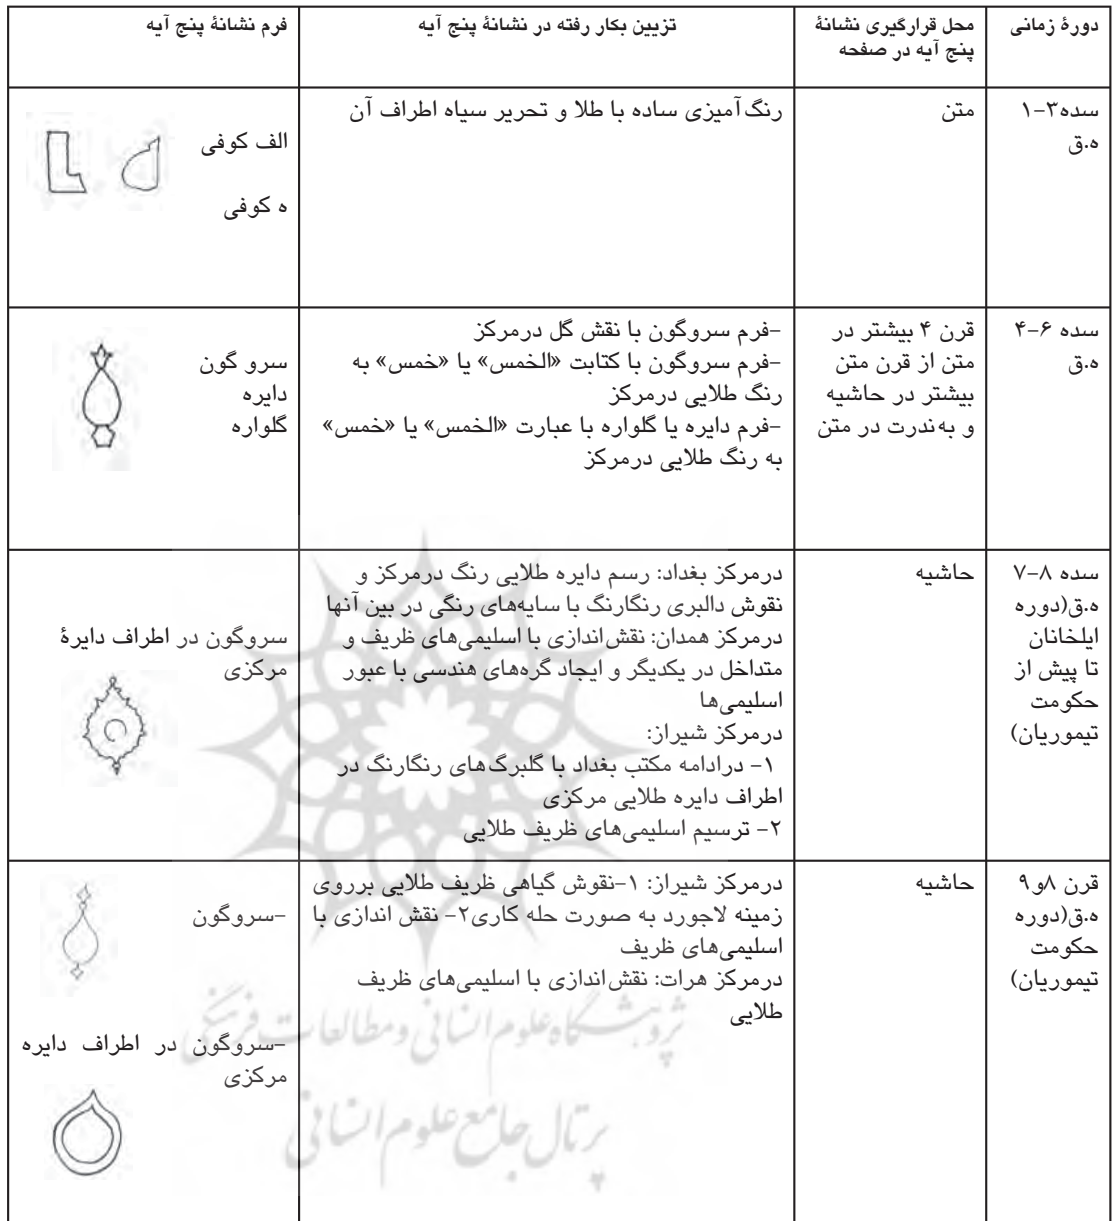 دورهٔ زمانی
محل قرارگیری نشانهٔ
پنج آیه در صفحه
تزیین بکار رفته در نشانهٔ پنج آیه
فرم نشانهٔ پنج آیه
سده۳-۱
ه.ق
متن
رنگ‌آمیزی ساده با طلا و تحریر سیاه اطراف آن
الف کوفی
ه کوفی
سده ۶-۴
ه.ق
قرن ۴ بیشتر در
متن از قرن متن
بیشتر در حاشیه
و به‌ندرت در متن
-فرم سروگون با نقش گل درمرکز
-فرم سروگون با کتابت «الخمس» یا «خمس» به
رنگ طلایی درمرکز
-فرم دایره یا گلواره با عبارت «الخمس» یا «خمس»
به رنگ طلایی درمرکز
سرو گون
دایره
گلواره
سده ۸-۷
ه.ق(دوره
ایلخانان
تا پیش از
حکومت
تیموریان)
حاشیه
درمرکز بغداد: رسم دایره طلایی رنگ درمرکز و
نقوش دالبری رنگارنگ با سایه‌های رنگی در بین آنها
درمرکز همدان: نقش‌اندازی با اسلیمی‌های ظریف و
متداخل در یکدیگر و ایجاد گره‌های هندسی با عبور
اسلیمی‌ها
درمرکز شیراز:
۱- درادامه مکتب بغداد با گلبرگ‌های رنگارنگ در
اطراف دایره طلایی مرکزی
۲- ترسیم اسلیمی‌های ظریف طلایی
سروگون در اطراف دایرهٔ
مرکزی
قرن ۸و۹
ه.ق(دوره
حکومت
تیموریان)
حاشیه
درمرکز شیراز: ۱-نقوش گیاهی ظریف طلایی برروی
زمینه لاجورد به صورت حله کاری۲- نقش اندازی با
اسلیمی‌های ظریف
درمرکز هرات: نقش‌اندازی با اسلیمی‌های ظریف
طلایی
-سروگون
-سروگون در اطراف دایره
مرکزی
پژوهشگاه علوم انسانی و مطالعات فرهنگی
پرتال جامع علوم انسانی